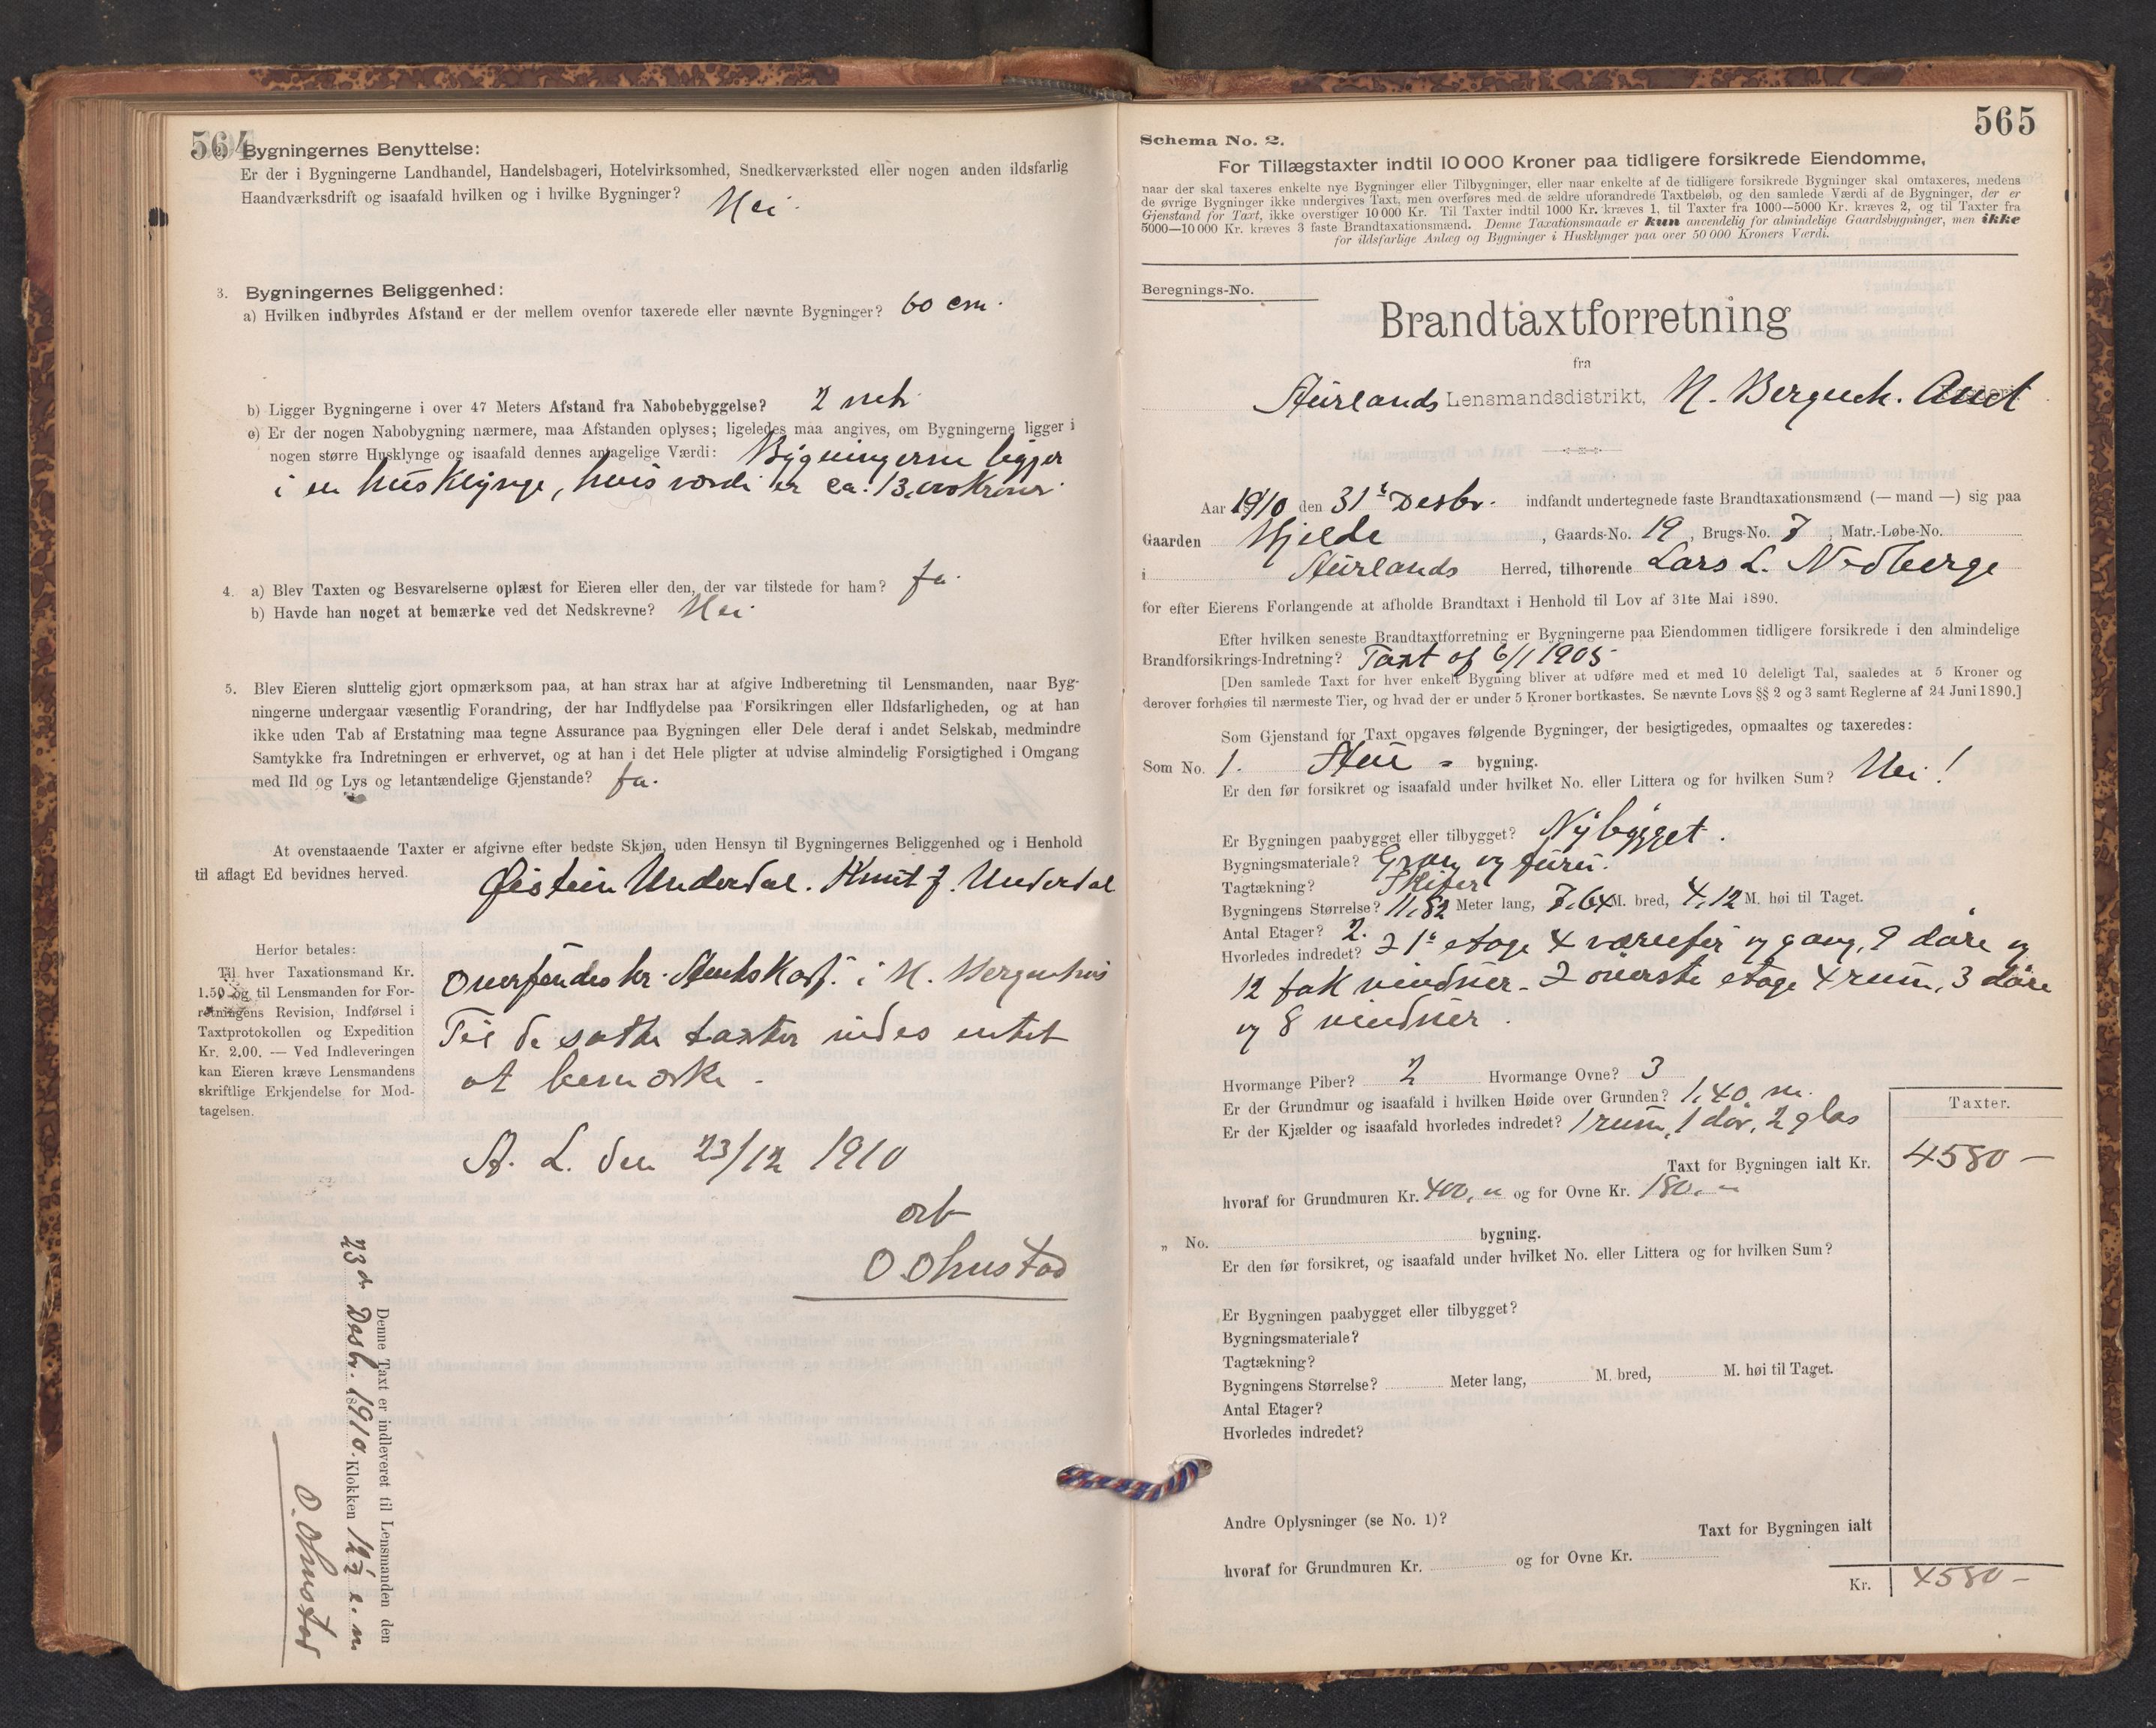 564
2. Bygningernes Benyttelse:
Er der i Bygningerne Landhandel, Handelsbageri, Hotelvirksomhed, Snedkerværksted eller nogen anden ildsfarlig
Haandværksdrift og isaafald hvilken og i hvilke Bygninger? Nei.
3. Bygningernes Beliggenhed:
a) Hvilken indbyrdes Afstand er der mellem ovenfor taxerede eller nævnte Bygninger? 60 cm.
b) Ligger Bygningerne i over 47 Meters Afstand fra Nabobebyggelse? 2 metr
c) Er der nogen Nabobygning nærmere, maa Afstanden oplyses; ligeledes maa angives, om Bygningerne ligger i
nogen større Husklynge og isaafald dennes antagelige Værdi: Bygningerne ligger
i en husklynge, hvis værdi er ca. 13,000 kroner.
4. a) Blev Taxten og Besvarelserne oplæst for Eieren eller den, der var tilstede for ham? Ja.
b) Havde han noget at bemærke ved det Nedskrevne? Nei
5. Blev Eieren sluttelig gjort opmærksom paa, at han strax har at afgive Indberetning til Lensmanden, naar Byg-
ningerne undergaar væsentlig Forandring, der har Indflydelse paa Forsikringen eller Ildsfarligheden, og at han
ikke uden Tab af Erstatning maa tegne Assurance paa Bygningen eller Dele deraf i andet Selskab, medmindre
Samtykke fra Indretningen er erhvervet, og at han i det Hele pligter at udvise almindelig Forsigtighed i Omgang
med Ild og Lys og letantændelige Gjenstande? Ja.
At ovenstaaende Taxter er afgivne efter bedste Skjøn, uden Hensyn til Bygningernes Beliggenhed og i Henhold
til aflagt Ed bevidnes herved.
Øistein Underdal. Knut J. Underdal
Herfor betales:
Til hver Taxationsmand Kr.
1.50 og til Lensmanden for For-
retningens Revision, Indførsel i
Taxtprotokollen og Expedition
Kr. 2.00. — Ved Indleveringen
kan Eieren kræve Lensmandens
skriftlige Erkjendelse for Mod-
tagelsen.
Oversendes hr. i N. Bergenhus
Til de satte taxter vides intet
at bemærke.
A. L. den 23/12 1910
O. Ohnstad
Denne Taxt er indleveret til Lensmanden den
23de Desbr. 1910. Klokken 12½ e. m
O. Ohnstad
565
Schema No. 2.
For Tillægstaxter indtil 10 000 Kroner paa tidligere forsikrede Eiendomme,
naar der skal taxeres enkelte nye Bygninger eller Tilbygninger, eller naar enkelte af de tidligere forsikrede Bygninger skal omtaxeres, medens
de øvrige Bygninger ikke undergives Taxt, men overføres med de ældre uforandrede Taxtbeløb, og den samlede Værdi af de Bygninger, der er
Gjenstand for Taxt, ikke overstiger 10 000 Kr. Til Taxter indtil 1000 Kr. kræves 1, til Taxter fra 1000—5000 Kr. kræves 2, og til Taxter fra
5000—10 000 Kr. kræves 3 faste Brandtaxationsmænd. Denne Taxationsmaade er kun anvendelig for almindelige Gaardsbygninger, men ikke
for ildsfarlige Anlæg og Bygninger i Husklynger paa over 50 000 Kroners Værdi.
Beregnings-No.
Brandtaxtforretning
fra
Aurlands Lensmandsdistrikt, N. Bergenh. Amt
Aar 1910 den 31te Desbr. indfandt undertegnede faste Brandtaxationsmænd (— mand —) sig paa
Gaarden Hjelde, Gaards-No. 19, Brugs-No. 7, Matr.-Løbe-No.
i Aurlands Herred, tilhørende Lars L. Nedberge
for efter Eierens Forlangende at afholde Brandtaxt i Henhold til Lov af 31te Mai 1890.
Efter hvilken seneste Brandtaxtforretning er Bygningerne paa Eiendommen tidligere forsikrede i den almindelige
Brandforsikrings-Indretning? Taxt af 6/1 1905
[Den samlede Taxt for hver enkelt Bygning bliver at udføre med et med 10 deleligt Tal, saaledes at 5 Kroner og
derover forhøies til nærmeste Tier, og hvad der er under 5 Kroner bortkastes. Se nævnte Lovs §§ 2 og 3 samt Reglerne af 24 Juni 1890.]
Som Gjenstand for Taxt opgaves følgende Bygninger, der besigtigedes, opmaaltes og taxeredes:
Som No. 1. Stue - bygning.
Er den før forsikret og isaafald under hvilket No. eller Littera og for hvilken Sum? Nei!
Er Bygningen paabygget eller tilbygget? Nybygget.
Bygningsmateriale? Gran og furu.
Tagtækning? Skifer
Bygningens Størrelse? 11,82 Meter lang, 7,64 M. bred, 4,12 M. høi til Taget.
Antal Etager? 2.
Hvorledes indredet? I 1ste etage 4 værelser og gang, 9 døre og
12 fak vinduer. I øverste etage 4 rum, 3 døre
og 8 vinduer.
Hvormange Piber? 2 Hvormange Ovne? 3
Er der Grundmur og isaafald i hvilken Høide over Grunden? 1,40 m.
Er der Kjælder og isaafald hvorledes indredet? 1 rum, 1 dør, 2 glas
Taxter.
Taxt for Bygningen ialt Kr. 4580 —
hvoraf for Grundmuren Kr. 400,- og for Ovne Kr. 180.-
„ No. bygning.
Er den før forsikret, og isaafald under hvilket No. eller Littera og for hvilken Sum?
Er Bygningen paabygget eller tilbygget?
Bygningsmateriale?
Tagtækning?
Bygningens Størrelse? Meter lang, M. bred, M. høi til Taget.
Antal Etager?
Hvorledes indredet?
Andre Oplysninger (se No. 1)?
Taxt for Bygningen ialt
hvoraf for Grundmuren Kr. og for Ovne Kr.
Kr. 4580 -